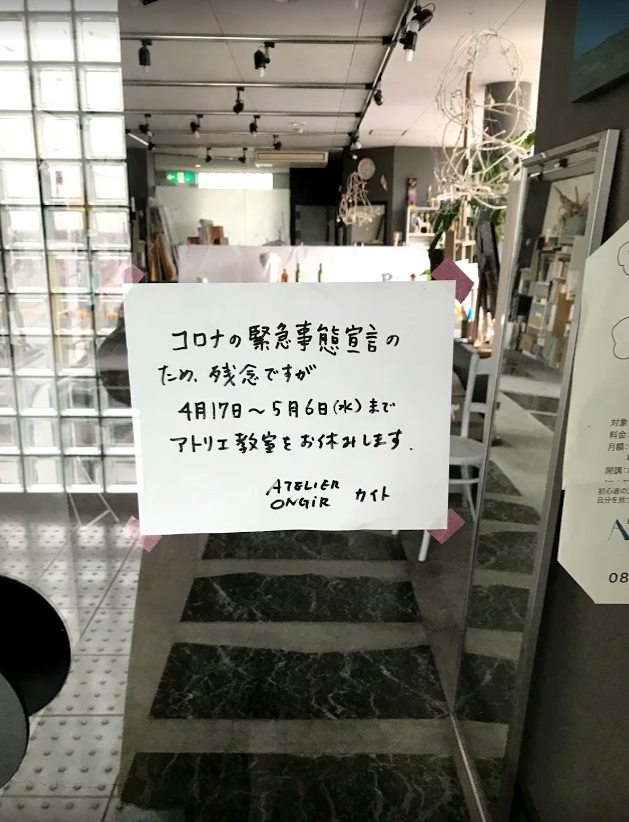 コロナの緊急事態宣言の
ため、残念ですが
4月17日～5月6日(水)まで
アトリエ教室をお休みします.
ATELIER
ONGIR カイト
対象
料金:
月額:
開講:
初心者の
自分を見つ
08